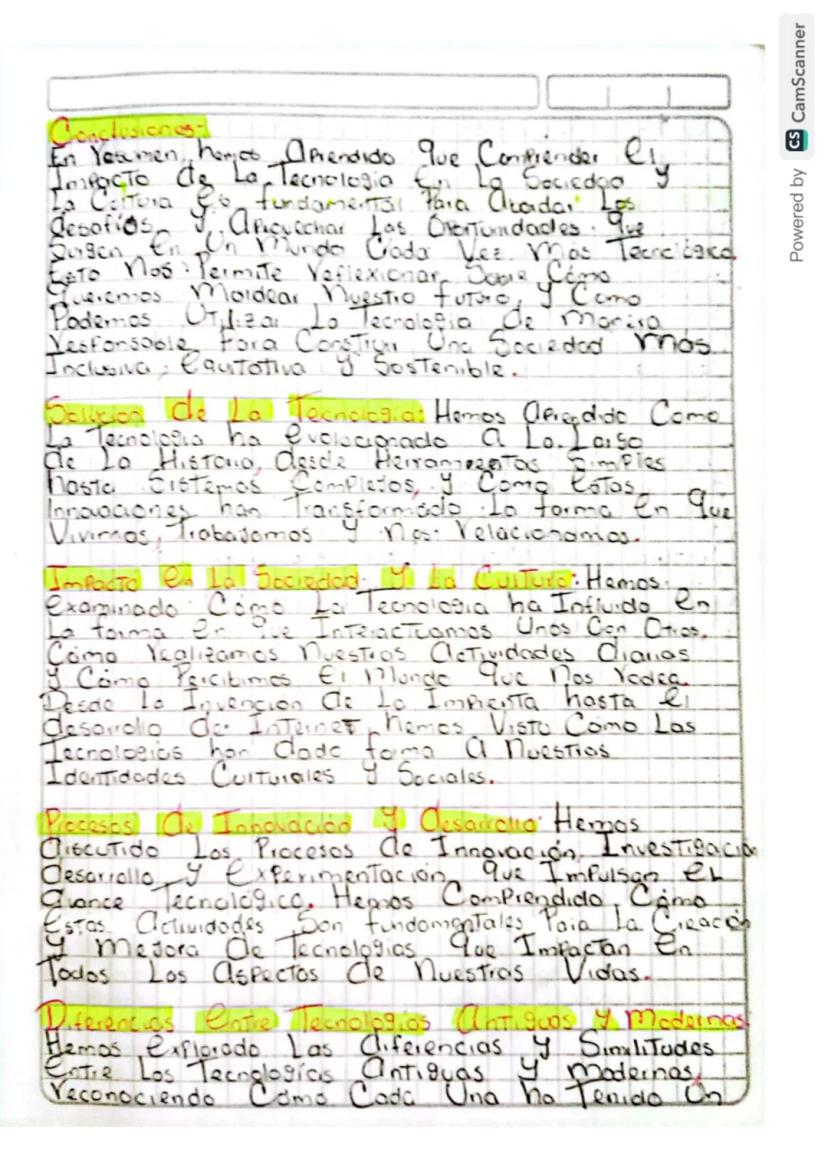 Conclusiones:
En resumen, hemos aprendido que comprender el
Impacto de La Tecnologia en La Sociedad y
La Cultura es fundamental para abordar Los
desafios y aprovechar Las Oportunidades que
Surgen en Un Mundo Cada Vez Mas Tecnologico.
Esto Nos Permite reflexionar Sobre Cómo
Queremos Moldear Nuestro futuro, y Como
Podemos Utilizar La Tecnologia de Manera
responsable Para Construir Una Sociedad Mas
Inclusiva, equitativa y Sostenible.
de La Tecnologia: Hemos aprendido Como
La Tecnologia ha evolucionado A Lo Largo
de La Historia, desde Herramientas Simples
hasta Sistemas Complejos, y Como estas
Innovaciones han Transformado La forma en que
Vivimos, Trabajamos y Nos relacionamos.
Impacto en La Sociedad y La Cultura: Hemos
examinado Cómo La Tecnologia ha Influido en
La forma en que Interactuamos Unos Con Otros,
Cómo realizamos Nuestras actividades diarias
y Cómo Percibimos El Mundo que Nos rodea.
Desde La Invención de La Imprenta hasta el
desarrollo de Internet, hemos Visto Cómo Las
Tecnologias han dado forma A Nuestras
Identidades Culturales y Sociales.
Procesos de Innovación y desarrollo: Hemos
discutido Los Procesos de Innovación, Investigación
desarrollo y experimentación que Impulsan el
avance Tecnológico. Hemos Comprendido Cómo
estas actividades Son fundamentales Para la Creación
y Mejora de Tecnologias que Impactan en
Todos Los aspectos de Nuestras Vidas.
Diferencias entre Tecnologias antiguas y Modernas
Hemos explorado Las diferencias y Similitudes
entre Las Tecnologias antiguas y modernas,
reconociendo Cómo Cada Una ha Tenido Un
Powered by CS CamScanner